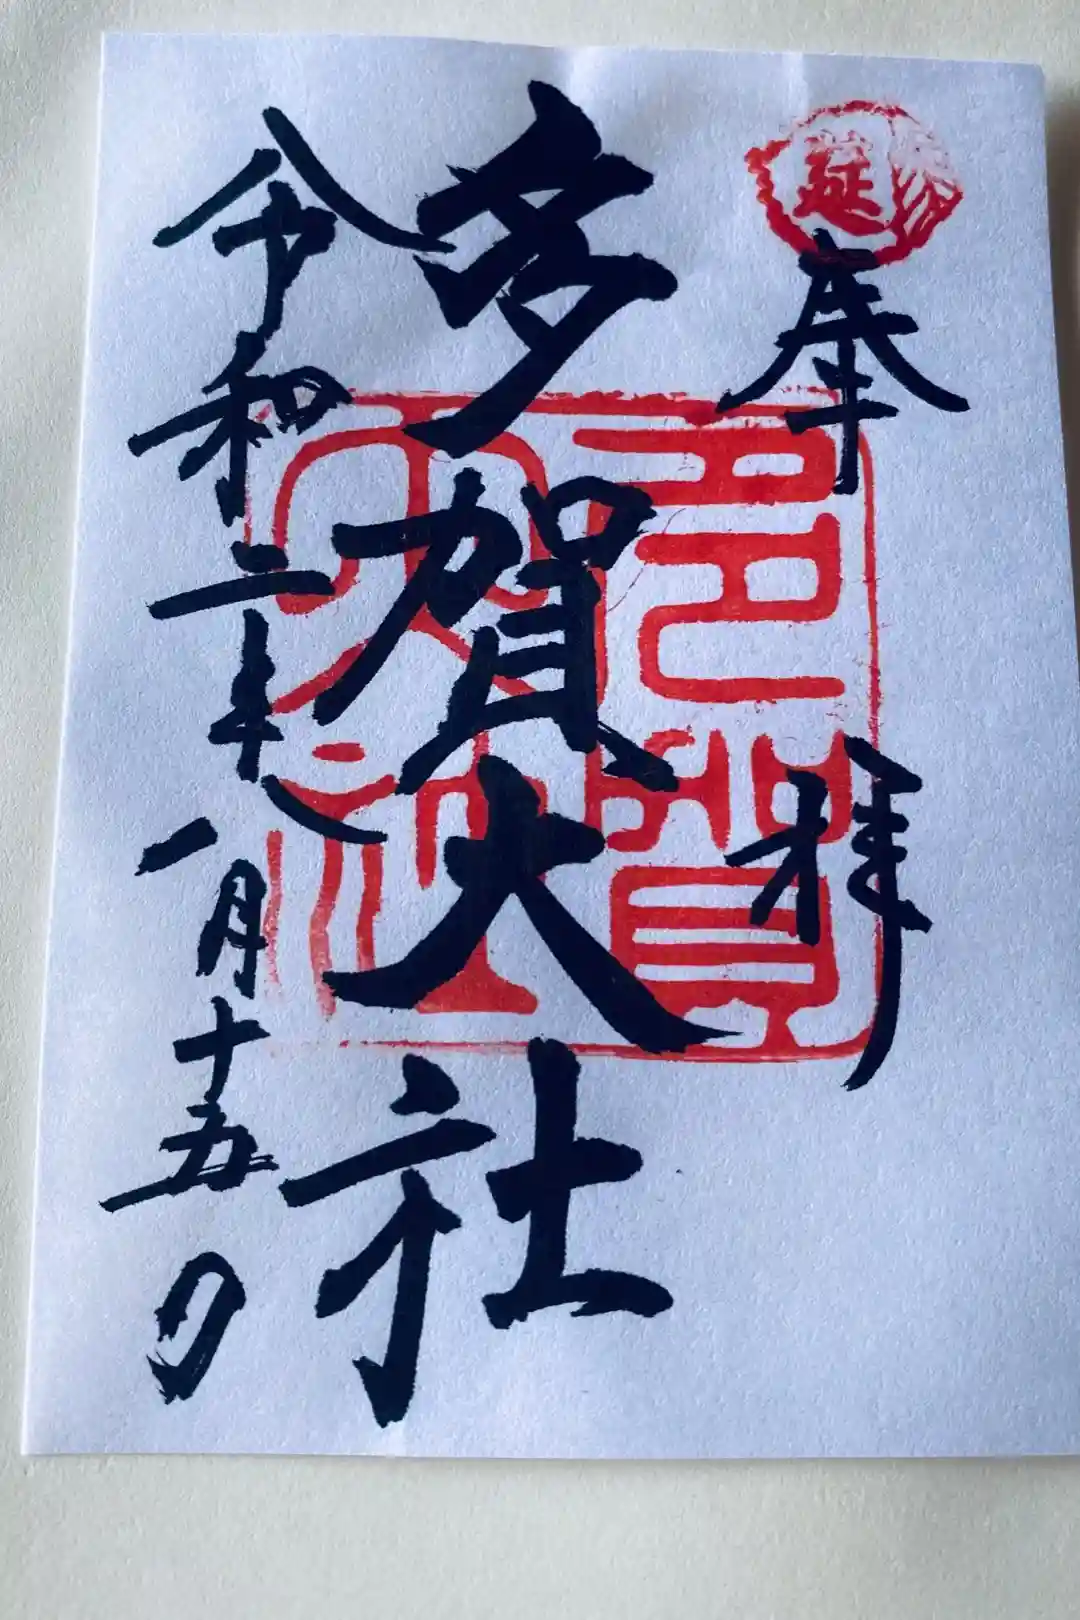 奉拝
延
多賀大社
多賀大社
令和二年八月十五日